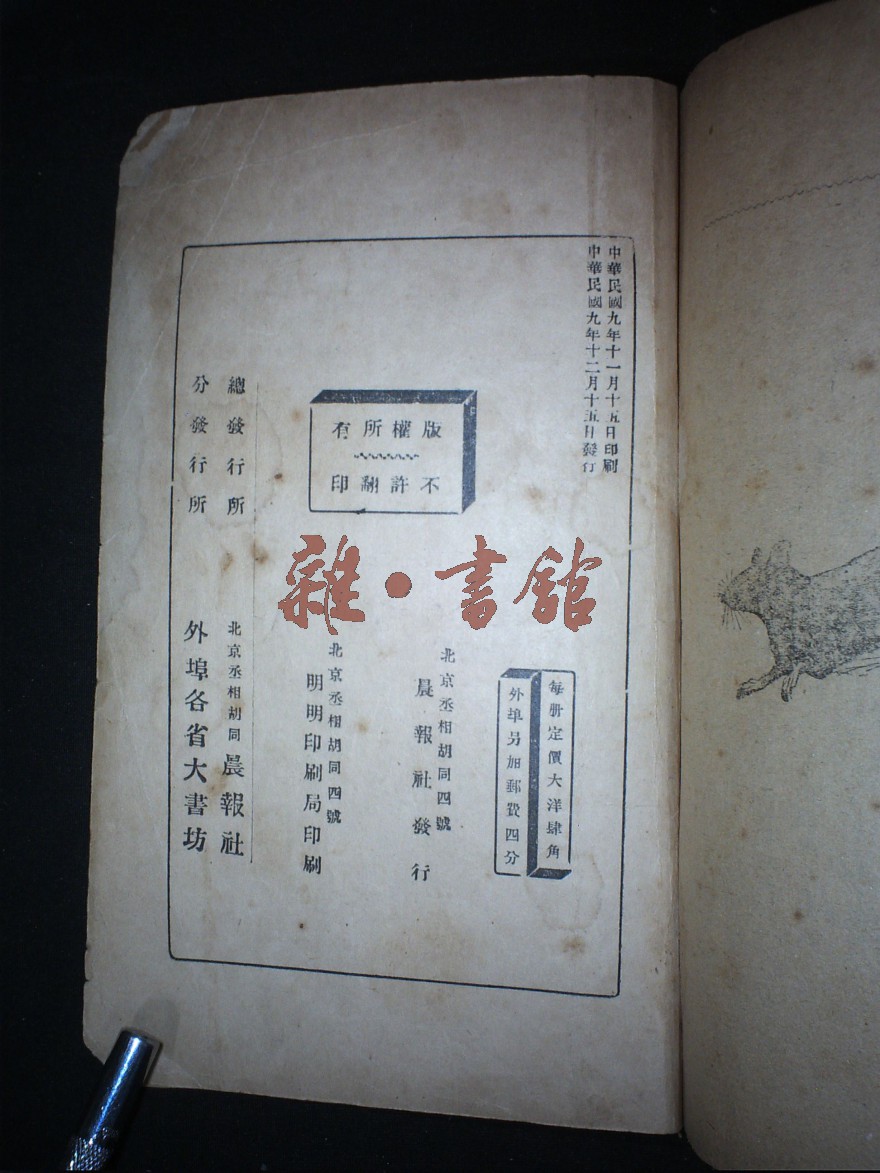 中華民國九年十一月十五日印刷
中華民國九年十二月十五日發行
版權所有
不許翻印
每册定價大洋肆角
外埠另加郵費四分
北京丞相胡同四號
晨報社發行
北京丞相胡同四號
明明印刷局印刷
總發行所 北京丞相胡同 晨報社
分發行所 外埠各省大書坊
雜·書館